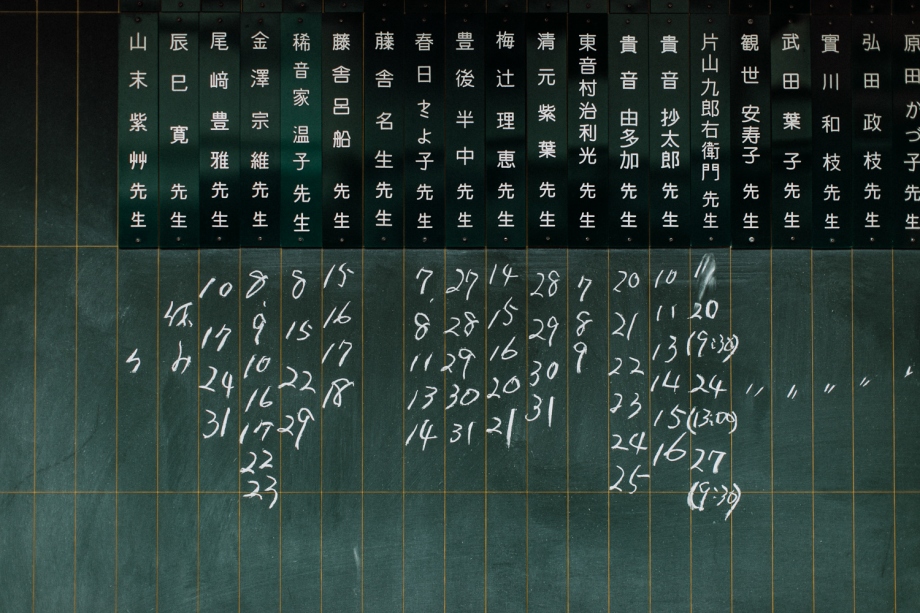 原田かつ子先生
〃
弘田政枝先生
〃
實川和枝先生
〃
武田葉子先生
〃
観世安寿子先生
〃
片山九郎右衛門先生
20
(9:30)
24
(13:00)
27
(9:30)
貴音抄太郎先生
10
11
13
14
15
16
貴音由多加先生
20
21
22
23
24
25
東音村治利光先生
7
8
9
清元紫葉先生
28
29
30
31
梅辻理恵先生
14
15
16
20
21
豊後半中先生
27
28
29
30
31
春日とよ子先生
7
8
11
13
14
藤舎名生先生
藤舎呂船先生
15
16
17
18
稀音家温子先生
8
15
22
29
金澤宗維先生
8
9
10
16
17
22
23
尾﨑豊雅先生
10
17
24
31
辰巳寛先生
休み
山末紫艸先生